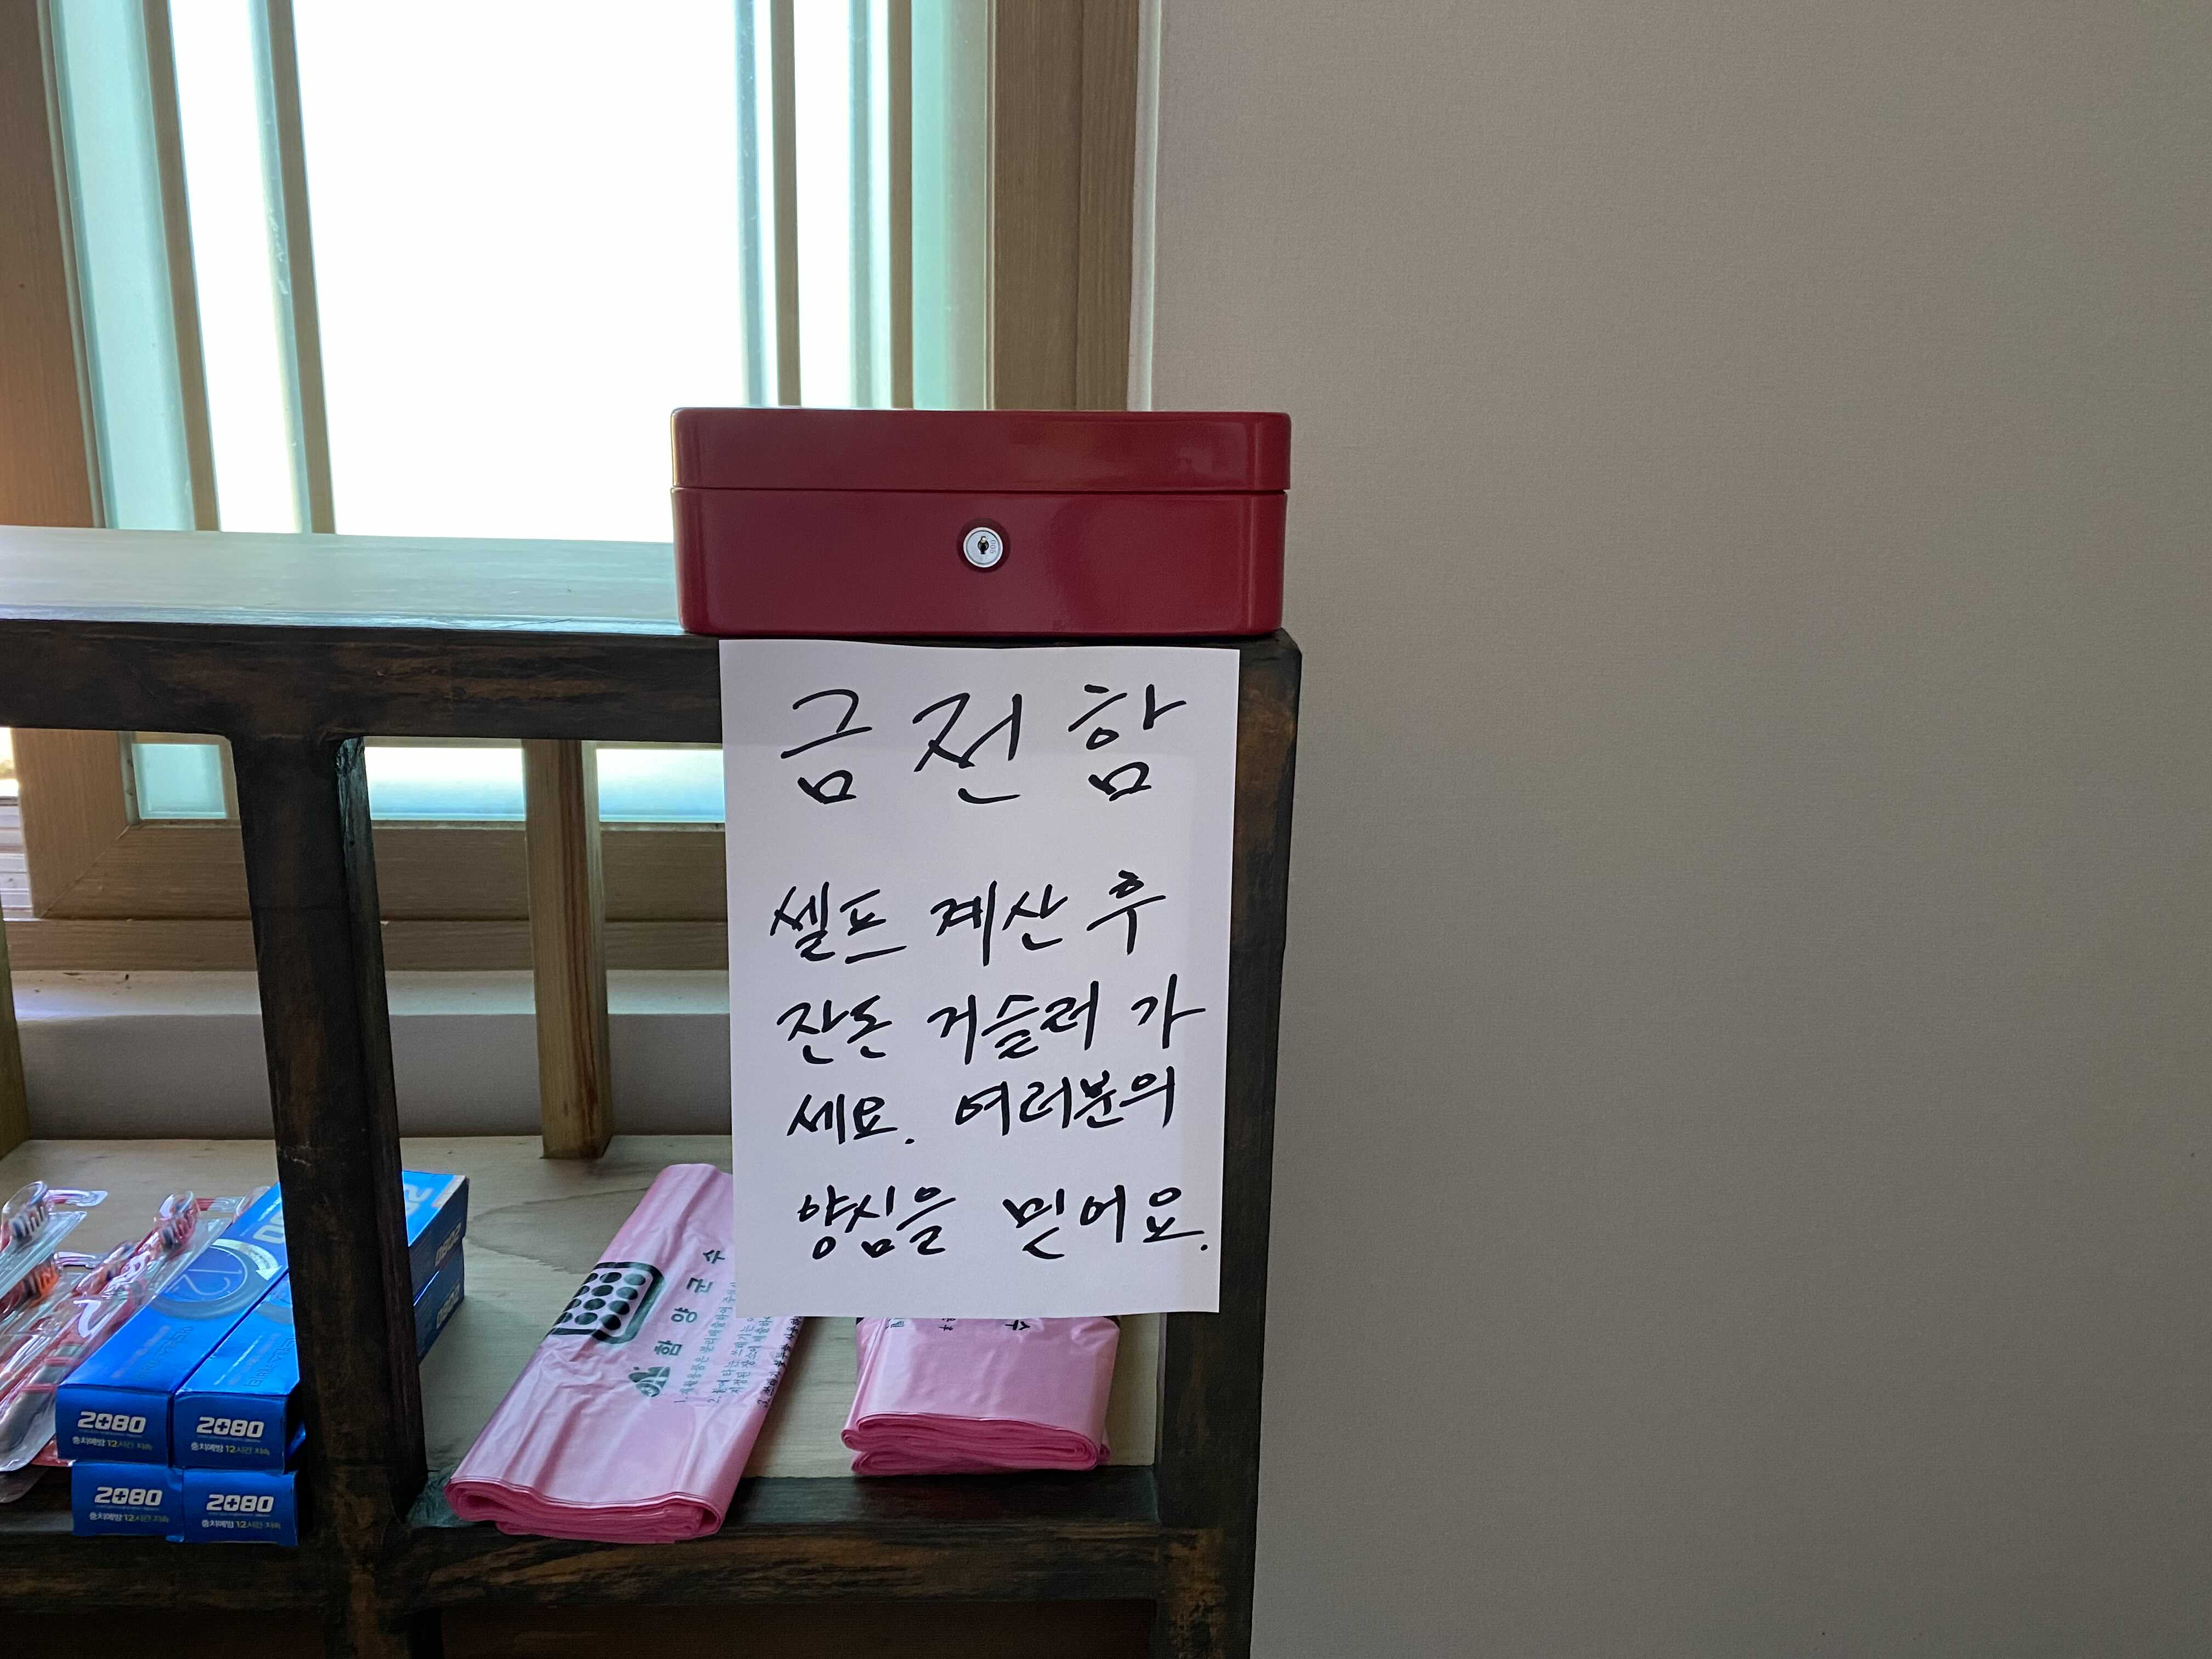 금전함
셀프 계산 후
잔돈 거슬러 가
세요. 여러분의
양심을 믿어요.
함양군수
2080
충치예방 12시간 지속
2080
충치예방 12시간 지속
2080
충치예방 12시간 지속
2080
충치예방 12시간 지속
2080